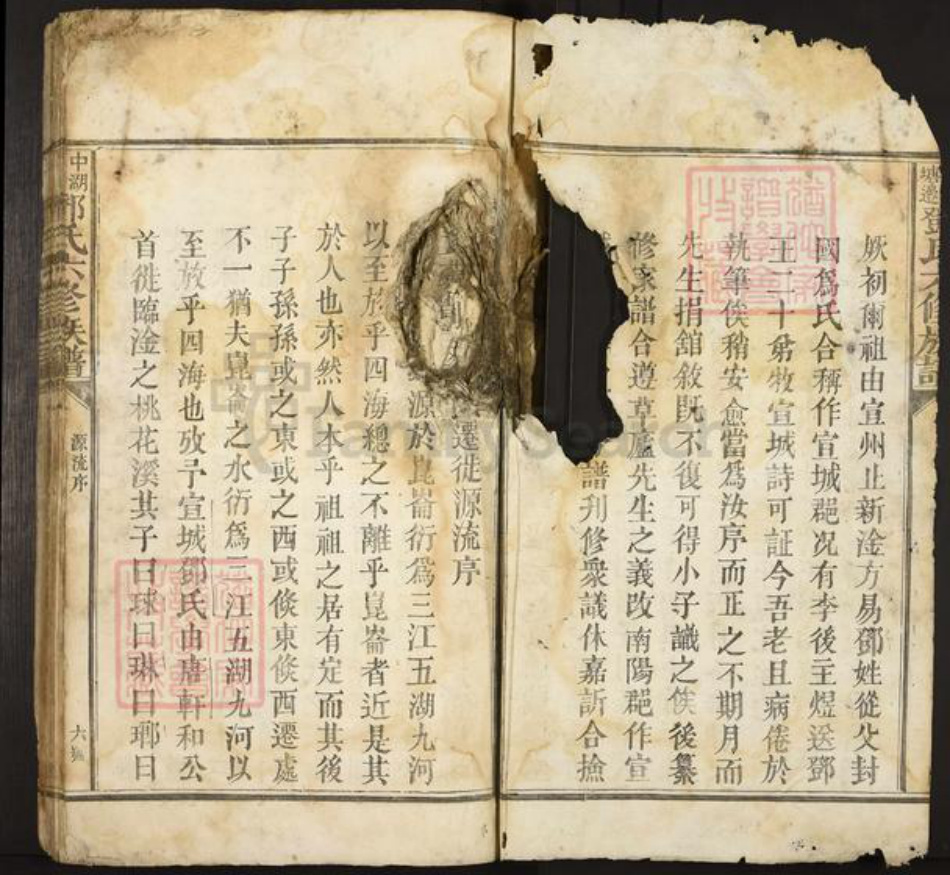 塘邊鄧氏六修族譜
厥初爾祖由宣州止新淦方易鄧姓從父封
國爲氏合稱作宣城郡况有李後主煜送鄧
王二十弟牧宣城詩可証今吾老且病倦於
執筆俟稍安愈當爲汝序而正之不期月而
先生捐舘敘既不復可得小子識之俟後纂
修家譜合遵草廬先生之義改南陽郡作宣
譜刋修衆議休嘉訢合撿
遷徙源流序
源於崑崙衍爲三江五湖九河
以至放乎四海總之不離乎崑崙者近是其
於人也亦然人本乎祖祖之居有定而其後
子子孫孫或之東或之西或倐東倐西遷處
不一猶夫崑侖之水衍爲三江五湖九河以
至放乎四海也攷予宣城鄧氏由唐軒和公
首徙臨淦之桃花溪其子曰球曰琳曰瑘曰
中湖鄧氏六修族譜
源流序
六
FamilySearch